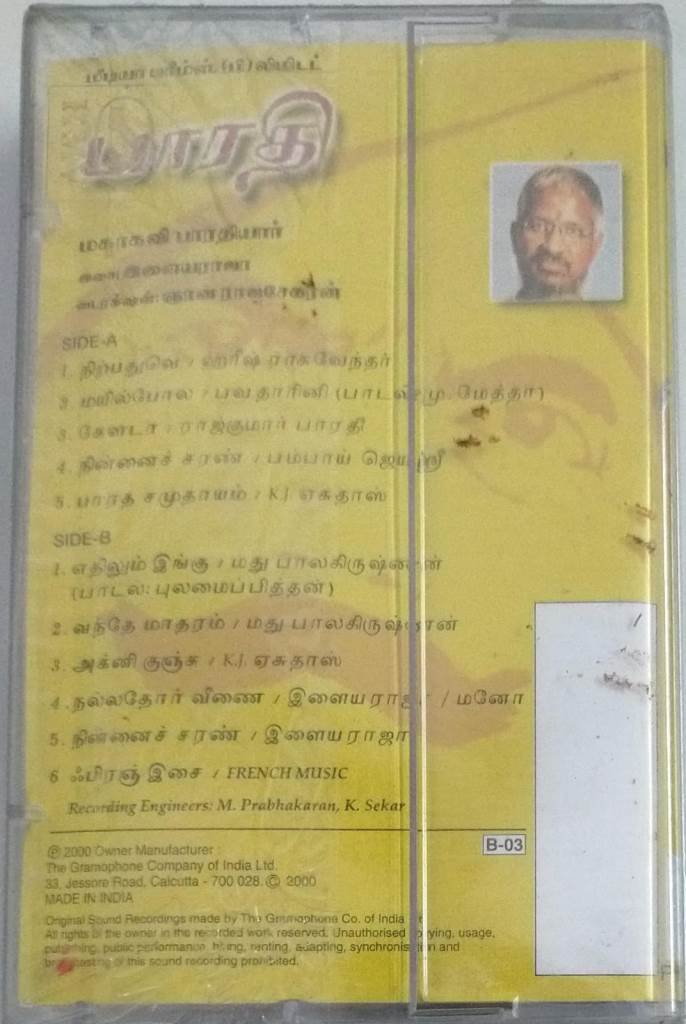 மீடியா டிரீம்ஸ் (பி) லிமிடட்
பாரதி
மகாகவி பாரதியார்
இசை: இளையராஜா
டைரக்‌ஷன்: ஞான ராஜசேகரன்
SIDE-A
1. நிற்பதுவெ / ஹரிஷ் ராகவேந்தர்
2. மயில்போல / பவதாரினி (பாடல்: மு. மேத்தா)
3. கேளடா / ராஜ்குமார் பாரதி
4. நின்னைச் சரண் / பம்பாய் ஜெயஸ்ரீ
5. பாரத சமுதாயம் / K.J. ஏசுதாஸ்
SIDE-B
1. எதிலும் இங்கு / மது பாலகிருஷ்ணன்
(பாடல: புலமைப்பித்தன்)
2. வந்தே மாதரம் / மது பாலகிருஷ்ணன்
3. அக்னி குஞ்சு / K.J. ஏசுதாஸ்
4. நல்லதோர் வீணை / இளையராஜா / மனோ
5. நின்னைச் சரண் / இளையராஜா
6 ஃபிரஞ் இசை / FRENCH MUSIC
Recording Engineers: M. Prabhakaran, K. Sekar
B-03
Ⓟ 2000 Owner Manufacturer :
The Gramophone Company of India Ltd.
33, Jessore Road, Calcutta - 700 028. © 2000
MADE IN INDIA
Original Sound Recordings made by The Gramophone Co. of India
All rights of the owner in the recorded work reserved. Unauthorised copying, usage,
publishing, public performance, hiring, renting, adapting, synchronisation and
broadcasting of this sound recording prohibited.